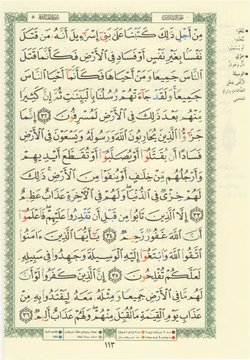 مِنْ أَجْلِ ذَٰلِكَ كَتَبْنَا عَلَىٰ بَنِي إِسْرَٰٓءِيلَ أَنَّهُۥ مَن قَتَلَ
نَفْسًۢا بِغَيْرِ نَفْسٍ أَوْ فَسَادٍ فِي ٱلْأَرْضِ فَكَأَنَّمَا قَتَلَ
ٱلنَّاسَ جَمِيعًا وَمَنْ أَحْيَاهَا فَكَأَنَّمَآ أَحْيَا ٱلنَّاسَ
جَمِيعًا وَلَقَدْ جَآءَتْهُمْ رُسُلُنَا بِٱلْبَيِّنَٰتِ ثُمَّ إِنَّ كَثِيرًا
مِّنْهُم بَعْدَ ذَٰلِكَ فِي ٱلْأَرْضِ لَمُسْرِفُونَ ٣٢ إِنَّمَا
جَزَٰٓؤُا۟ ٱلَّذِينَ يُحَارِبُونَ ٱللَّهَ وَرَسُولَهُۥ وَيَسْعَوْنَ فِي ٱلْأَرْضِ
فَسَادًا أَن يُقَتَّلُوٓا۟ أَوْ يُصَلَّبُوٓا۟ أَوْ تُقَطَّعَ أَيْدِيهِمْ
وَأَرْجُلُهُم مِّنْ خِلَٰفٍ أَوْ يُنفَوْا۟ مِنَ ٱلْأَرْضِ ذَٰلِكَ
لَهُمْ خِزْيٌ فِي ٱلدُّنْيَا وَلَهُمْ فِي ٱلْءَاخِرَةِ عَذَابٌ عَظِيمٌ
٣٣ إِلَّا ٱلَّذِينَ تَابُوا۟ مِن قَبْلِ أَن تَقْدِرُوا۟ عَلَيْهِمْ فَٱعْلَمُوٓا۟
أَنَّ ٱللَّهَ غَفُورٌ رَّحِيمٌ ٣٤ يَٰٓأَيُّهَا ٱلَّذِينَ ءَامَنُوا۟
ٱتَّقُوا۟ ٱللَّهَ وَٱبْتَغُوٓا۟ إِلَيْهِ ٱلْوَسِيلَةَ وَجَٰهِدُوا۟ فِي سَبِيلِهِۦ
لَعَلَّكُمْ تُفْلِحُونَ ٣٥ إِنَّ ٱلَّذِينَ كَفَرُوا۟ لَوْ أَنَّ
لَهُم مَّا فِي ٱلْأَرْضِ جَمِيعًا وَمِثْلَهُۥ مَعَهُۥ لِيَفْتَدُوا۟ بِهِۦ مِنْ
عَذَابِ يَوْمِ ٱلْقِيَٰمَةِ مَا تُقُبِّلَ مِنْهُمْ وَلَهُمْ عَذَابٌ أَلِيمٌ ٣٦
١١٣